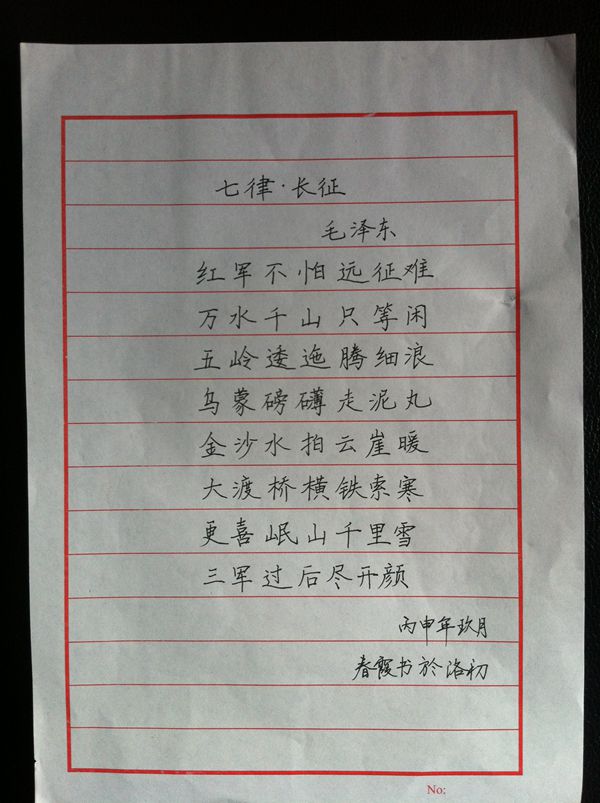 七律·长征
毛泽东
红军不怕远征难
万水千山只等闲
五岭逶迤腾细浪
乌蒙磅礴走泥丸
金沙水拍云崖暖
大渡桥横铁索寒
更喜岷山千里雪
三军过后尽开颜
丙申年玖月
春霞书於洛初
No: